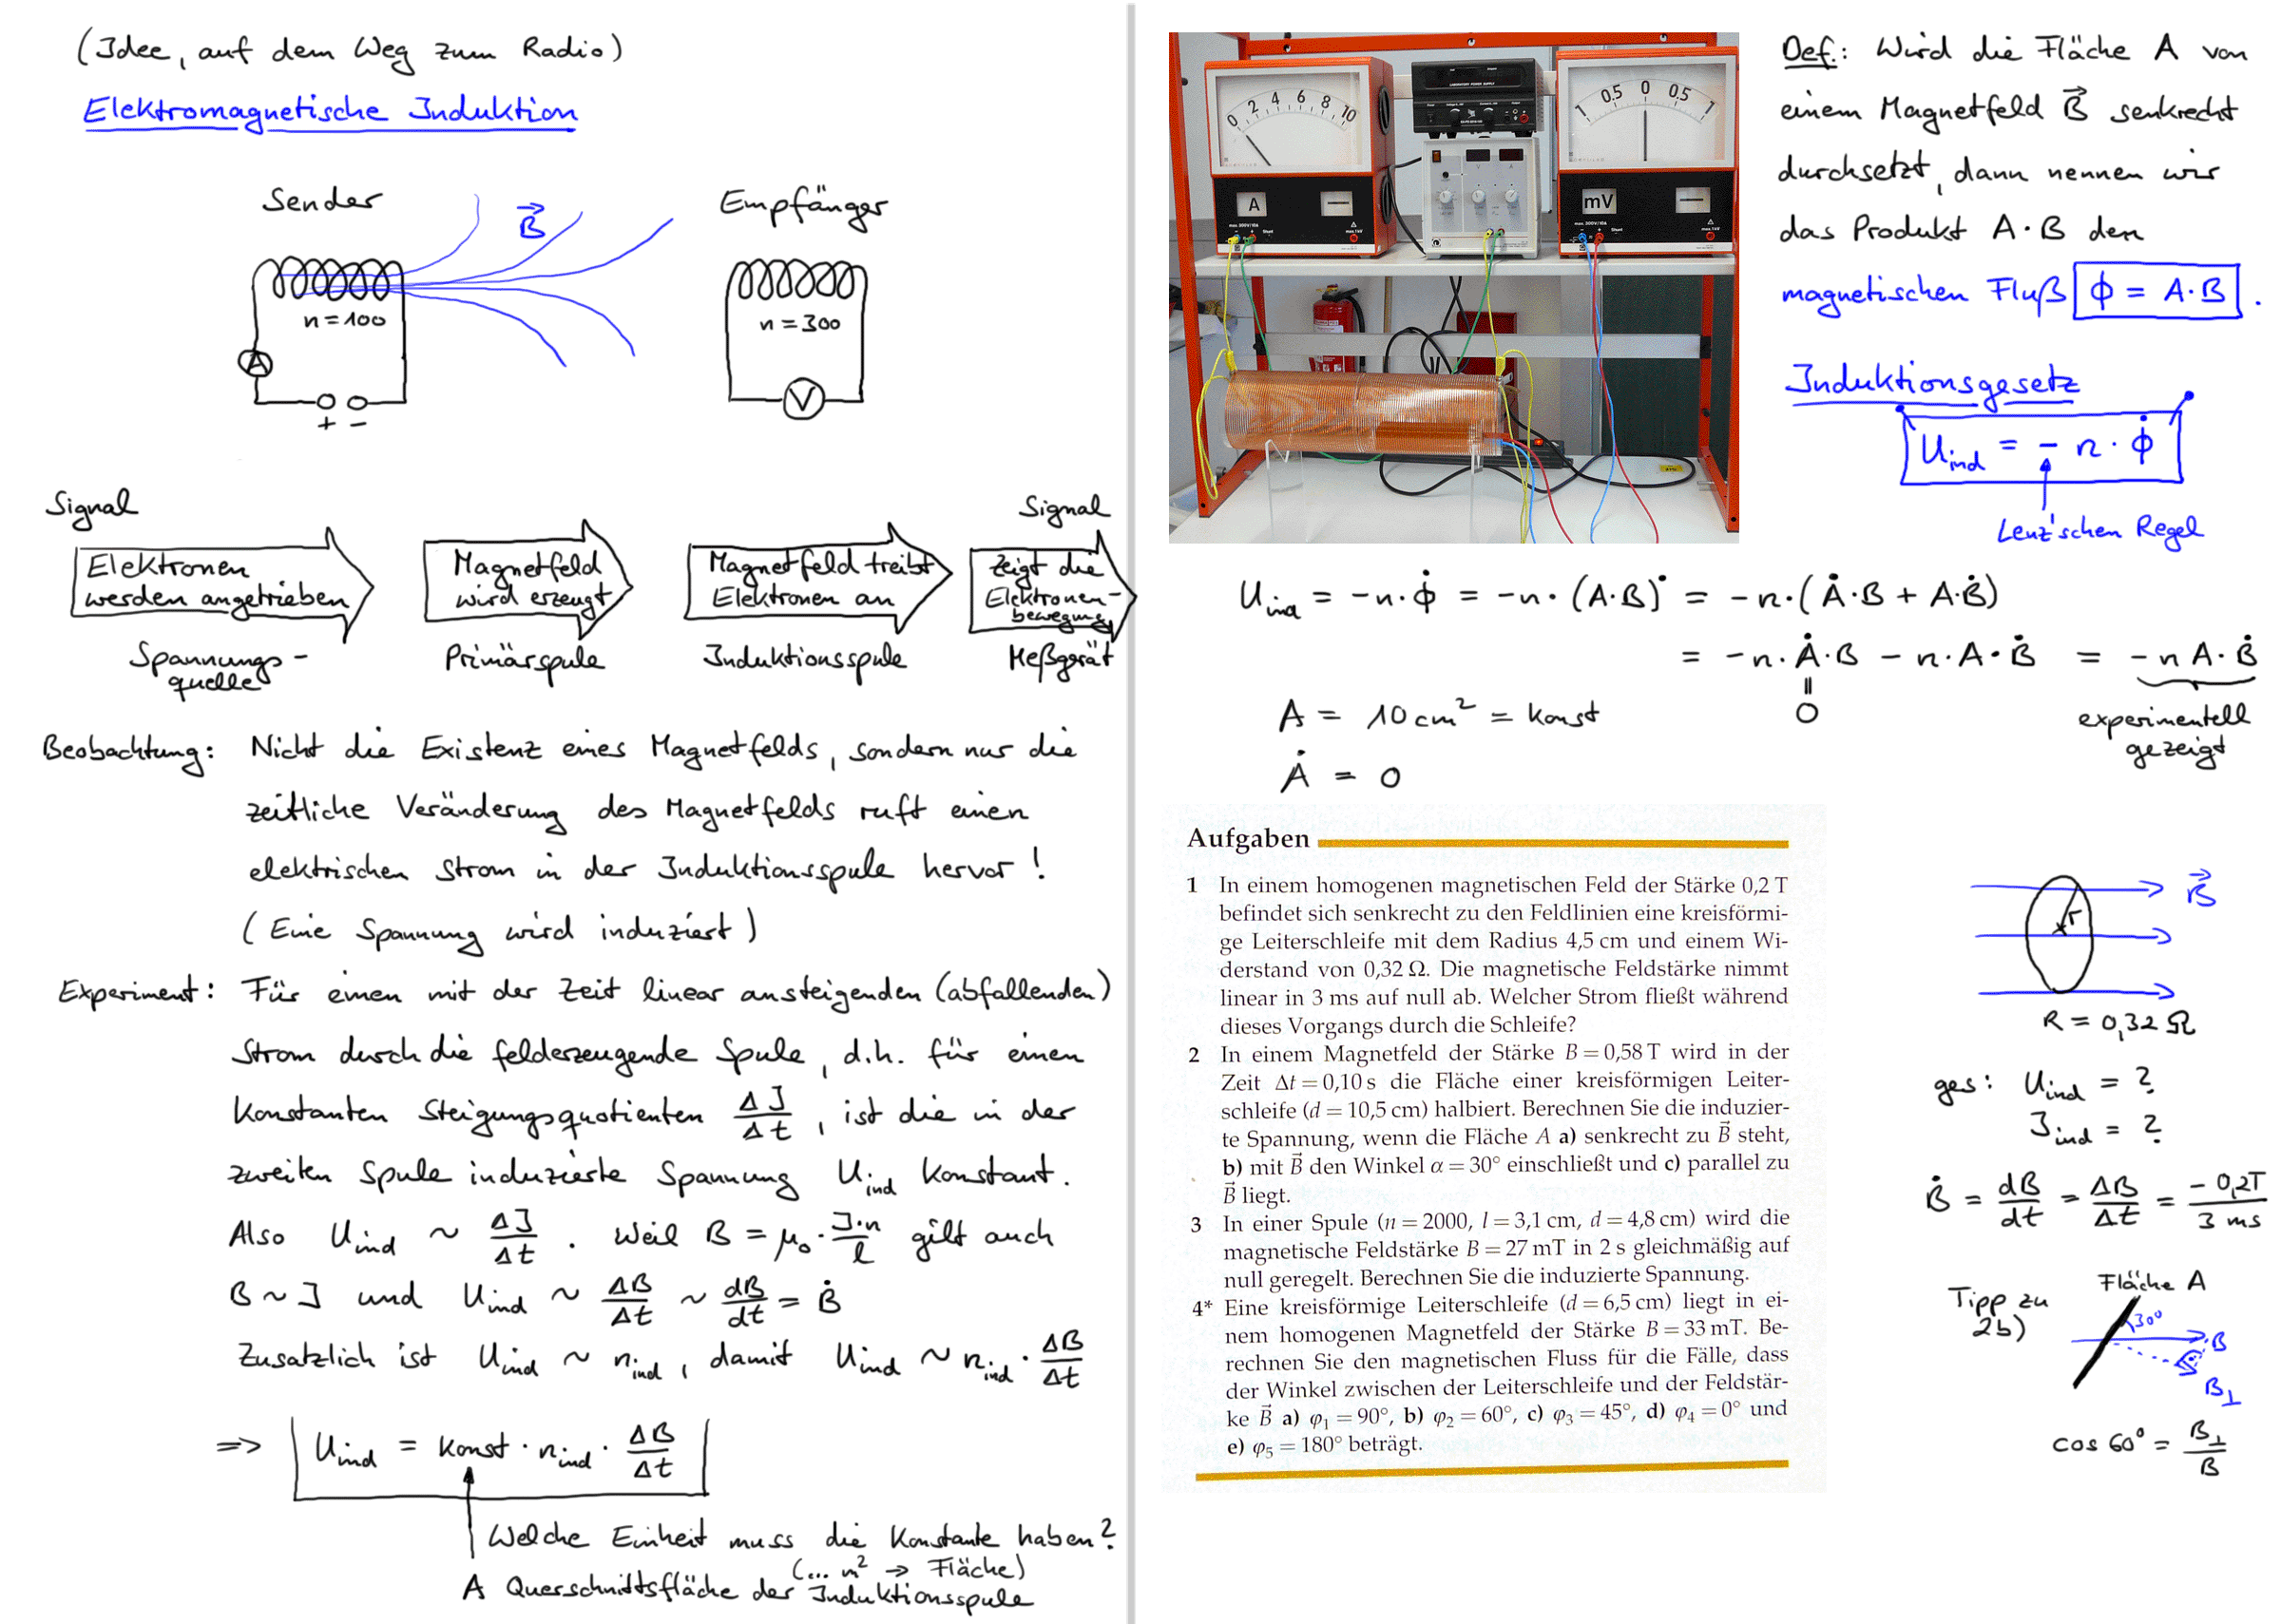 (Idee, auf dem Weg zum Radio)
Elektromagnetische Induktion
Sender
B⃗
Empfänger
n = 100
n = 300
A
V
+ −
Signal
Signal
Elektronen
werden angetrieben
Magnetfeld
wird erzeugt
Magnetfeld treibt
Elektronen an
zeigt die
Elektronen-
bewegung
Spannungs-
quelle
Primärspule
Induktionsspule
Meßgerät
Beobachtung: Nicht die Existenz eines Magnetfelds, sondern nur die
zeitliche Veränderung des Magnetfelds ruft einen
elektrischen Strom in der Induktionsspule hervor!
(Eine Spannung wird induziert)
Experiment: Für einen mit der Zeit linear ansteigenden (abfallenden)
Strom durch die felderzeugende Spule, d.h. für einen
konstanten Steigungsquotienten ΔI/Δt, ist die in der
zweiten Spule induzierte Spannung U_ind konstant.
Also U_ind ~ ΔI/Δt. Weil B = μ₀ · I·n/l gilt auch
B ~ I und U_ind ~ ΔB/Δt ~ dB/dt = Ḃ
Zusatzlich ist U_ind ~ n_ind, damit U_ind ~ n_ind · ΔB/Δt
=> U_ind = konst · n_ind · ΔB/Δt
Welche Einheit muss die Konstante haben?
(... m² → Fläche)
A Querschnittsfläche der Induktionsspule
0 2 4 6 8 10
1 0.5 0 0.5 1
A
mV
Def.: Wird die Fläche A von
einem Magnetfeld B⃗ senkrecht
durchsetzt, dann nennen wir
das Produkt A · B den
magnetischen Fluß ϕ = A · B.
Induktionsgesetz
U_ind = − n · ϕ̇
Lenz'schen Regel
U_ind = −n · ϕ̇ = −n · (A·B)˙ = −n · (Ȧ·B + A·Ḃ)
= −n · Ȧ·B − n·A·Ḃ = −n A·Ḃ
0
experimentell
gezeigt
A = 10 cm² = konst
Ȧ = 0
Aufgaben
1 In einem homogenen magnetischen Feld der Stärke 0,2 T
befindet sich senkrecht zu den Feldlinien eine kreisförmi-
ge Leiterschleife mit dem Radius 4,5 cm und einem Wi-
derstand von 0,32 Ω. Die magnetische Feldstärke nimmt
linear in 3 ms auf null ab. Welcher Strom fließt während
dieses Vorgangs durch die Schleife?
2 In einem Magnetfeld der Stärke B = 0,58 T wird in der
Zeit Δt = 0,10 s die Fläche einer kreisförmigen Leiter-
schleife (d = 10,5 cm) halbiert. Berechnen Sie die induzier-
te Spannung, wenn die Fläche A a) senkrecht zu B⃗ steht,
b) mit B⃗ den Winkel α = 30° einschließt und c) parallel zu
B⃗ liegt.
3 In einer Spule (n = 2000, l = 3,1 cm, d = 4,8 cm) wird die
magnetische Feldstärke B = 27 mT in 2 s gleichmäßig auf
null geregelt. Berechnen Sie die induzierte Spannung.
4* Eine kreisförmige Leiterschleife (d = 6,5 cm) liegt in ei-
nem homogenen Magnetfeld der Stärke B = 33 mT. Be-
rechnen Sie den magnetischen Fluss für die Fälle, dass
der Winkel zwischen der Leiterschleife und der Feldstär-
ke B⃗ a) φ₁ = 90°, b) φ₂ = 60°, c) φ₃ = 45°, d) φ₄ = 0° und
e) φ₅ = 180° beträgt.
B⃗
r
R = 0,32 Ω
ges: U_ind = ?
I_ind = ?
Ḃ = dB/dt = ΔB/Δt = −0,2T/3 ms
Tipp zu
2b)
Fläche A
30°
B
B⊥
cos 60° = B⊥/B